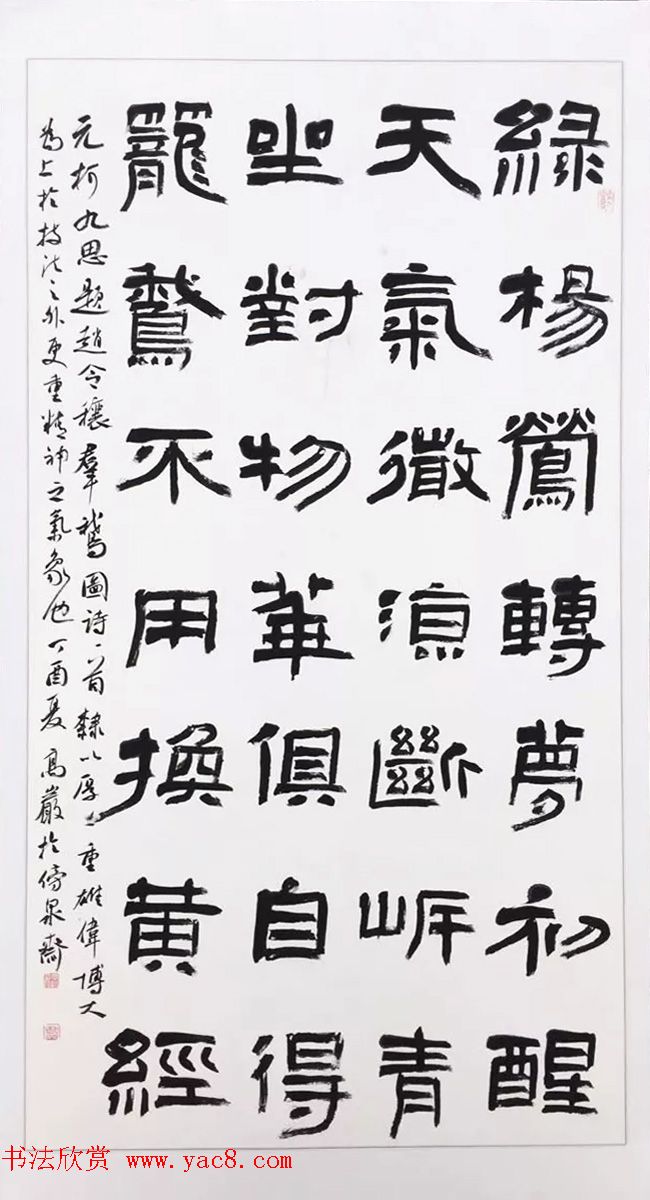 綠楊鶯轉夢初醒
天氣微涼斷岍青
坐對物華俱自得
籠鵞不用換黃經
元柯九思題趙令穰羣鵝圖詩一首隸以厚上重雄偉博大
為上於技法之外更重精神之氣象也丁酉夏高巖於傍泉齋
书法欣赏 www.yac8.com